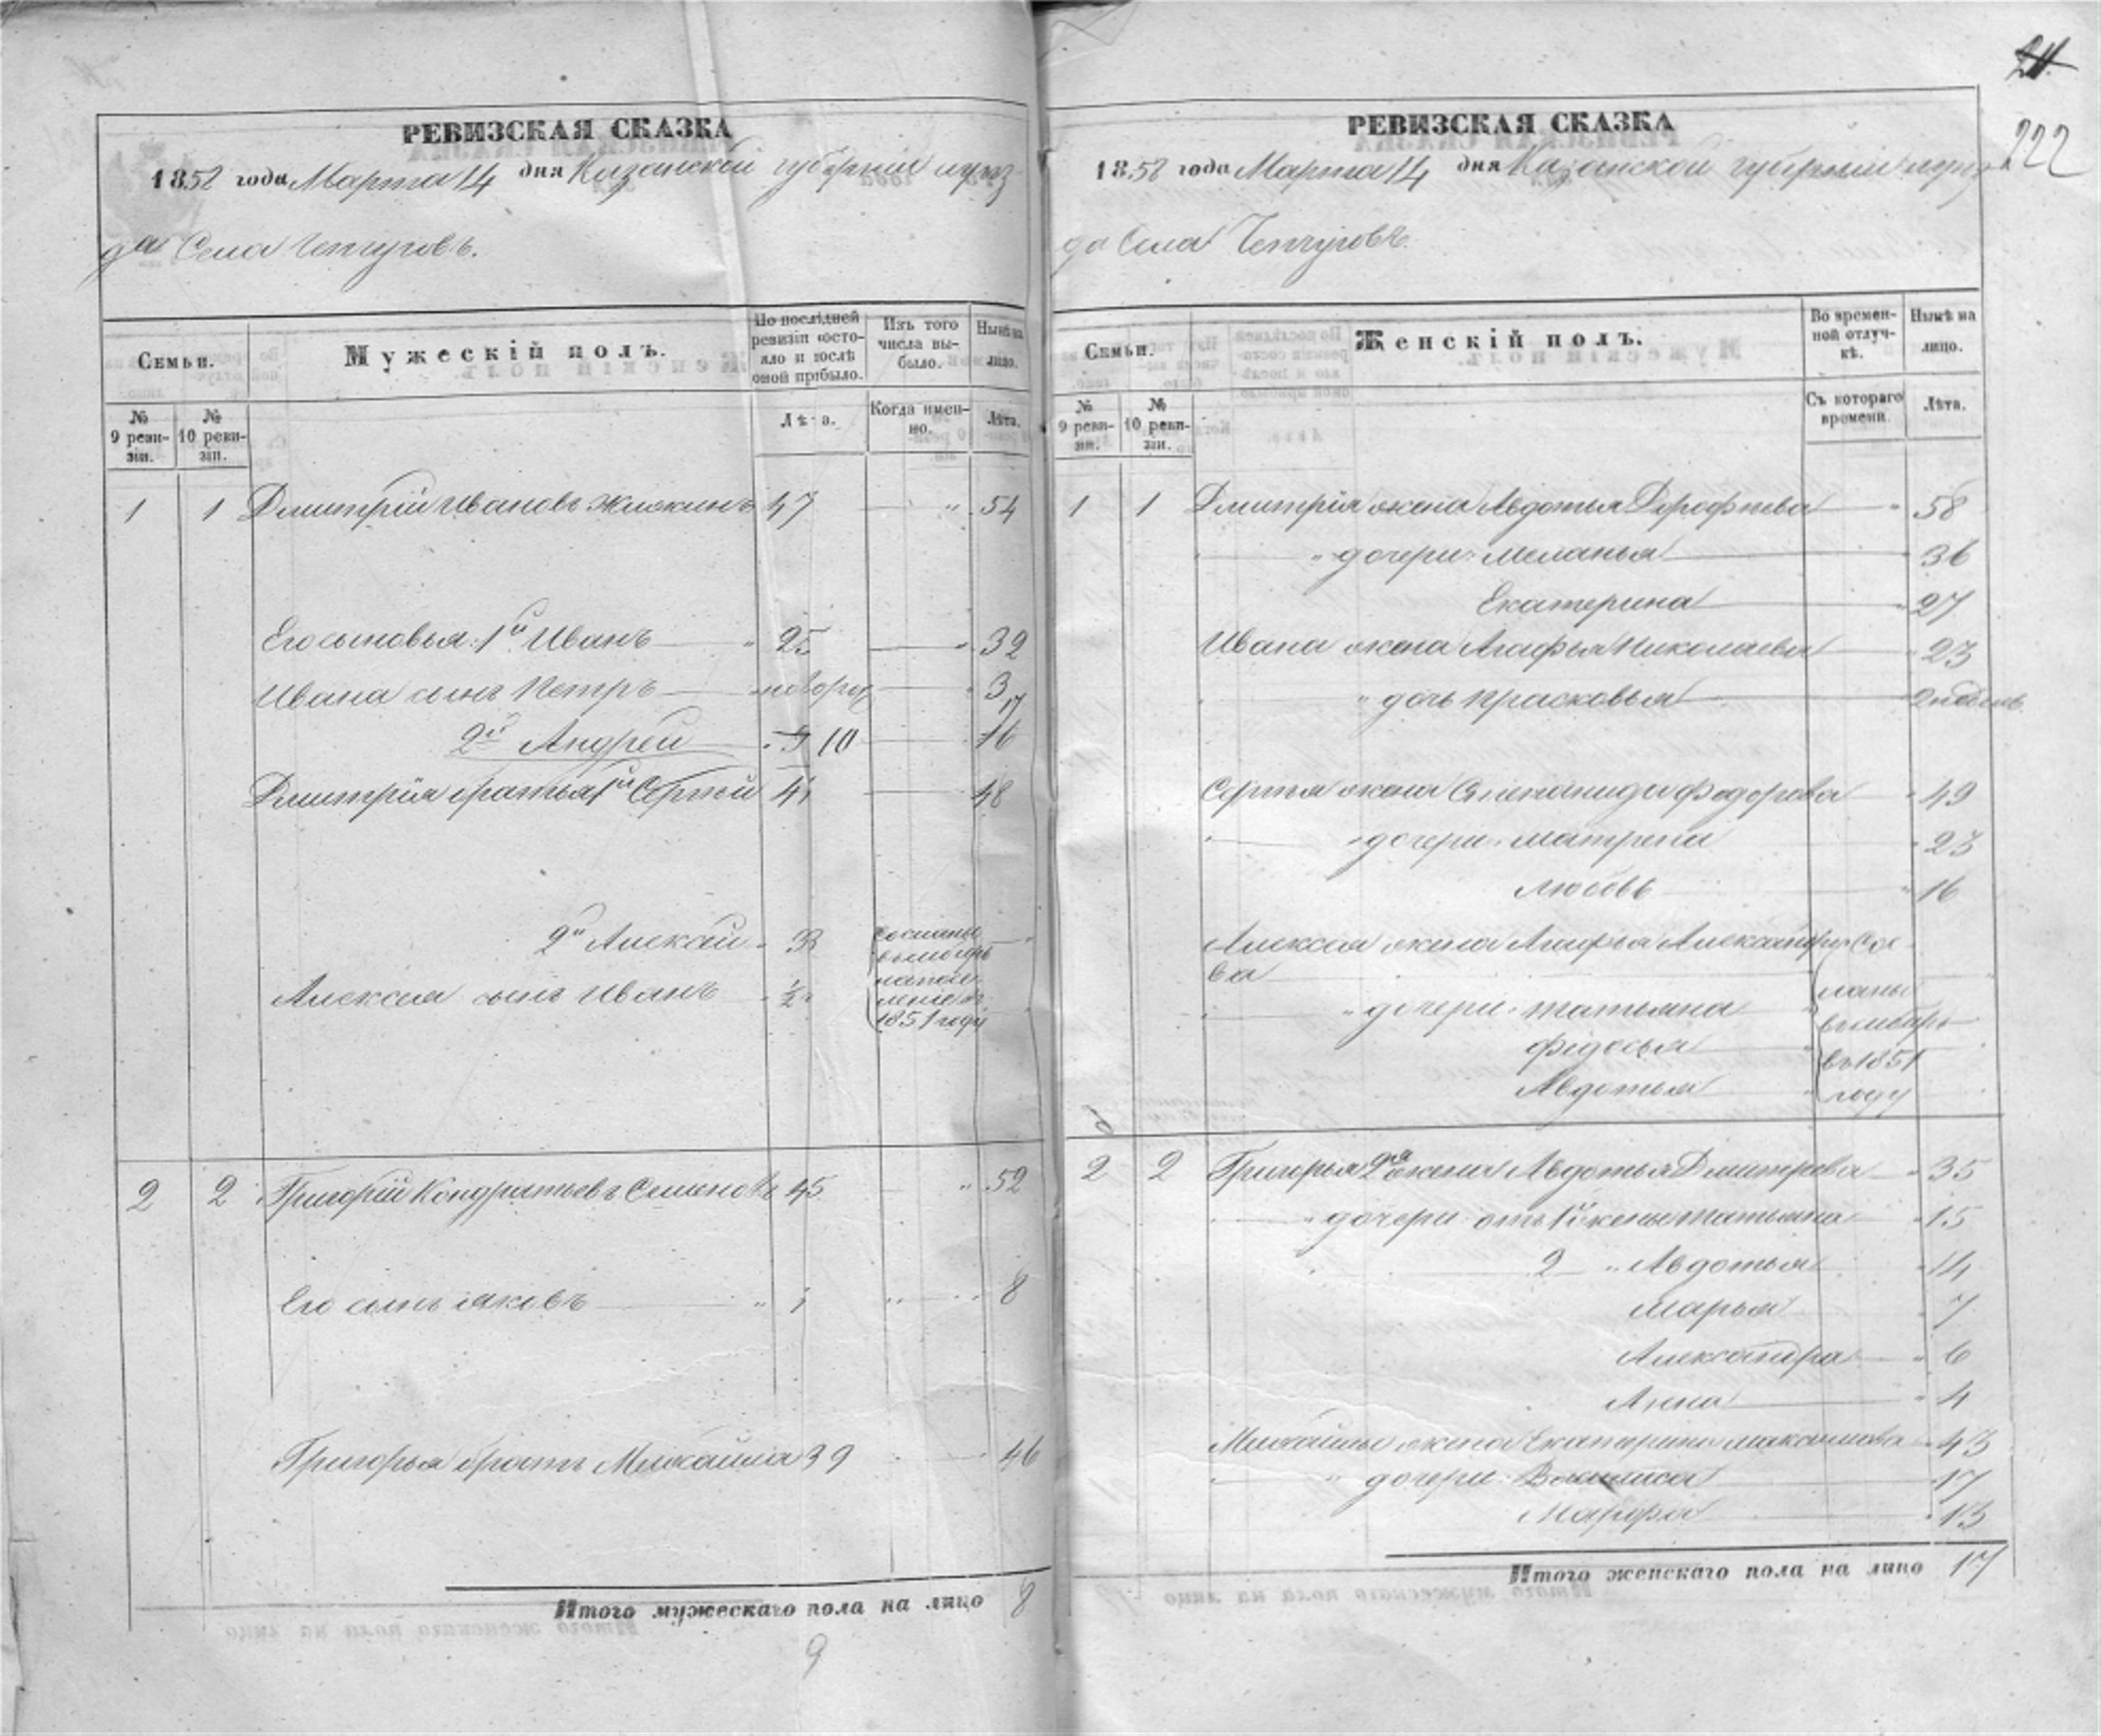 24.
222
РЕВИЗСКАЯ СКАЗКА
1858 года Марта 14 дня Казанской губерніи
да Села Чепчуговъ.
Семьи.
Мужескій полъ.
По послѣдней ревизіи состо-
яло и послѣ
оной прибыло.
Изъ того
числа вы-
было.
Нынѣ на
лицо.
№
9 реви-
зіи.
№
10 реви-
зіи.
Лѣта.
Когда имен-
но.
Лѣта.
1 1 Дмитрій Ивановъ 47 " 54
Его сыновья: 1й Иванъ 25 " 32
Ивана сынъ Петръ новорож 3
17
2й Андрей 9 10 16
Дмитрія братья 1й Сергѣй 41 48
2й Алексѣй 33
Алексея сынъ Иванъ ½
сосланы
въ сибирь
на посе-
леніе въ
1851 году
2 2 Григорій Кондратьевъ Семеновъ 45 " 52
Его сынъ Яковъ " 1 " " 8
Григорья братъ Михайла 39 46
Итого мужескаго пола на лицо 8
9
РЕВИЗСКАЯ СКАЗКА
1858 года Марта 14 дня Казанской губерніи
да Села Чепчуговъ.
Семьи.
Женскій полъ.
Во времен-
ной отлуч-
кѣ.
Нынѣ на
лицо.
№
9 реви-
зіи.
№
10 реви-
зіи.
Съ котораго
времени.
Лѣта.
1 1 Дмитрія жена Авдотья Дорофѣева " 58
" дочери: Меланья 36
Екатерина 27
Ивана жена Агафья Николаева 23
" дочь Прасковья 2 недѣль
Сергѣя жена Степанида Федорова 49
" дочери: Матрена 23
Любовь 16
Алексея жена Агафья Александро- сос-
ва
" дочери: Татьяна
Федосья
Авдотья
ланы
въ сибирь
въ 1851
году
2 2 Григорья 2я жена Авдотья Дмитрева 35
" дочери отъ 1й жены Татьяна 15
2 " Авдотья 14
Марья 7
Александра 6
Анна 4
Михайлы жена Екатерина Максимова 43
" дочери: Василиса 17
Марфа 13
Итого женскаго пола на лицо 17